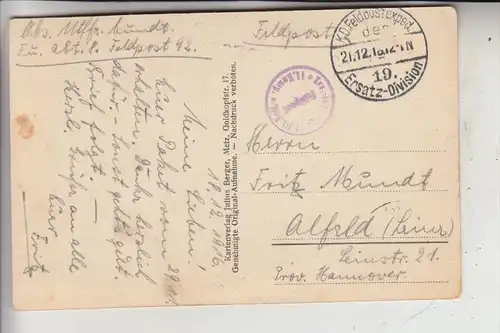 Abs. Utffz. Mundt.
Fu. Abt. 8. Feldpost 92.
Feldpost
K.D. Feldpostexped.
der
21.12.16.12-1N
19.
Ersatz-Division
19.12.1916
Meine Lieben!
Euer Paket vom
erhalten. Danke herzlich
dafür. - Sonst geht's gut.
Brief folgt. -
Herzl. Grüße an alle
Euer
Fritz
Kartenverlag Julius Berger, Metz, Goldkopfstr. 17.
Genehmigte Original-Aufnahme. — Nachdruck verboten.
Herrn
Fritz Mundt
Alfeld (Leine)
Leinstr 21.
Prov. Hannover.